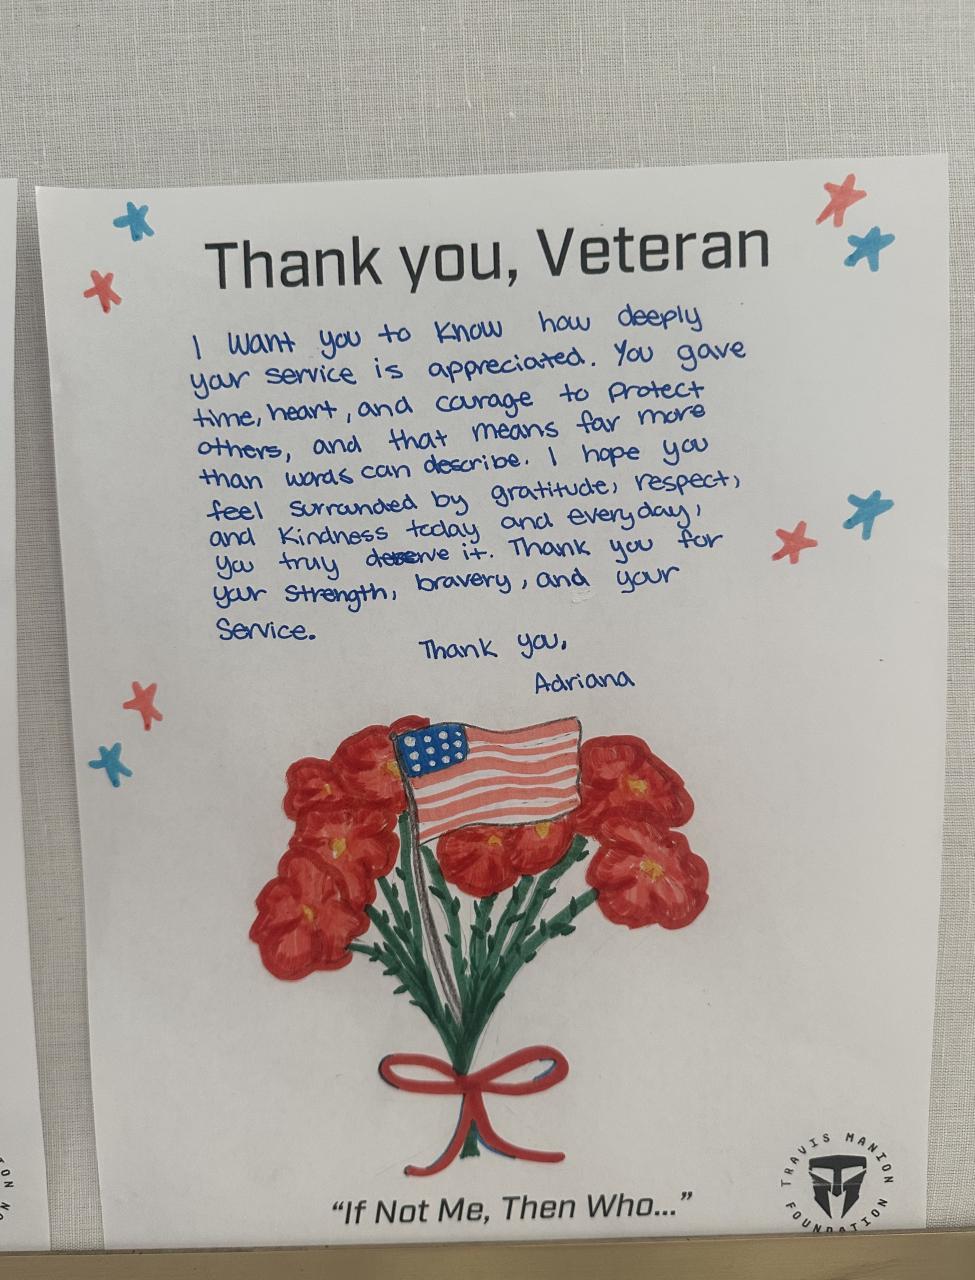 Thank you, Veteran
I want you to know how deeply
your service is appreciated. You gave
time, heart, and courage to protect
others, and that means far more
than words can describe. I hope you
feel surrounded by gratitude, respect,
and kindness today and everyday,
you truly deserve it. Thank you for
your strength, bravery, and your
service.
Thank you,
Adriana
"If Not Me, Then Who..."
TRAVIS MANION
FOUNDATION